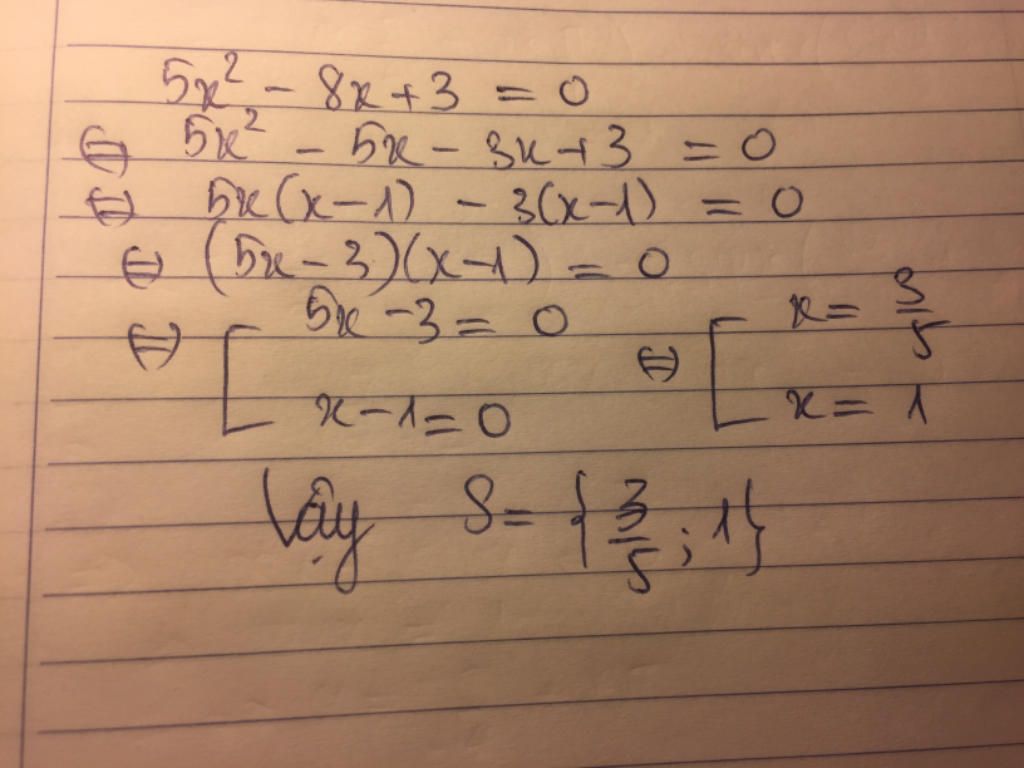 5x² - 8x + 3 = 0
⇔ 5x² - 5x - 3x + 3 = 0
⇔ 5x(x-1) - 3(x-1) = 0
⇔ (5x - 3)(x-1) = 0
⇔ [ 5x - 3 = 0 ⇔ [ x = 3/5
x - 1 = 0 x = 1
Vậy S = {3/5; 1}